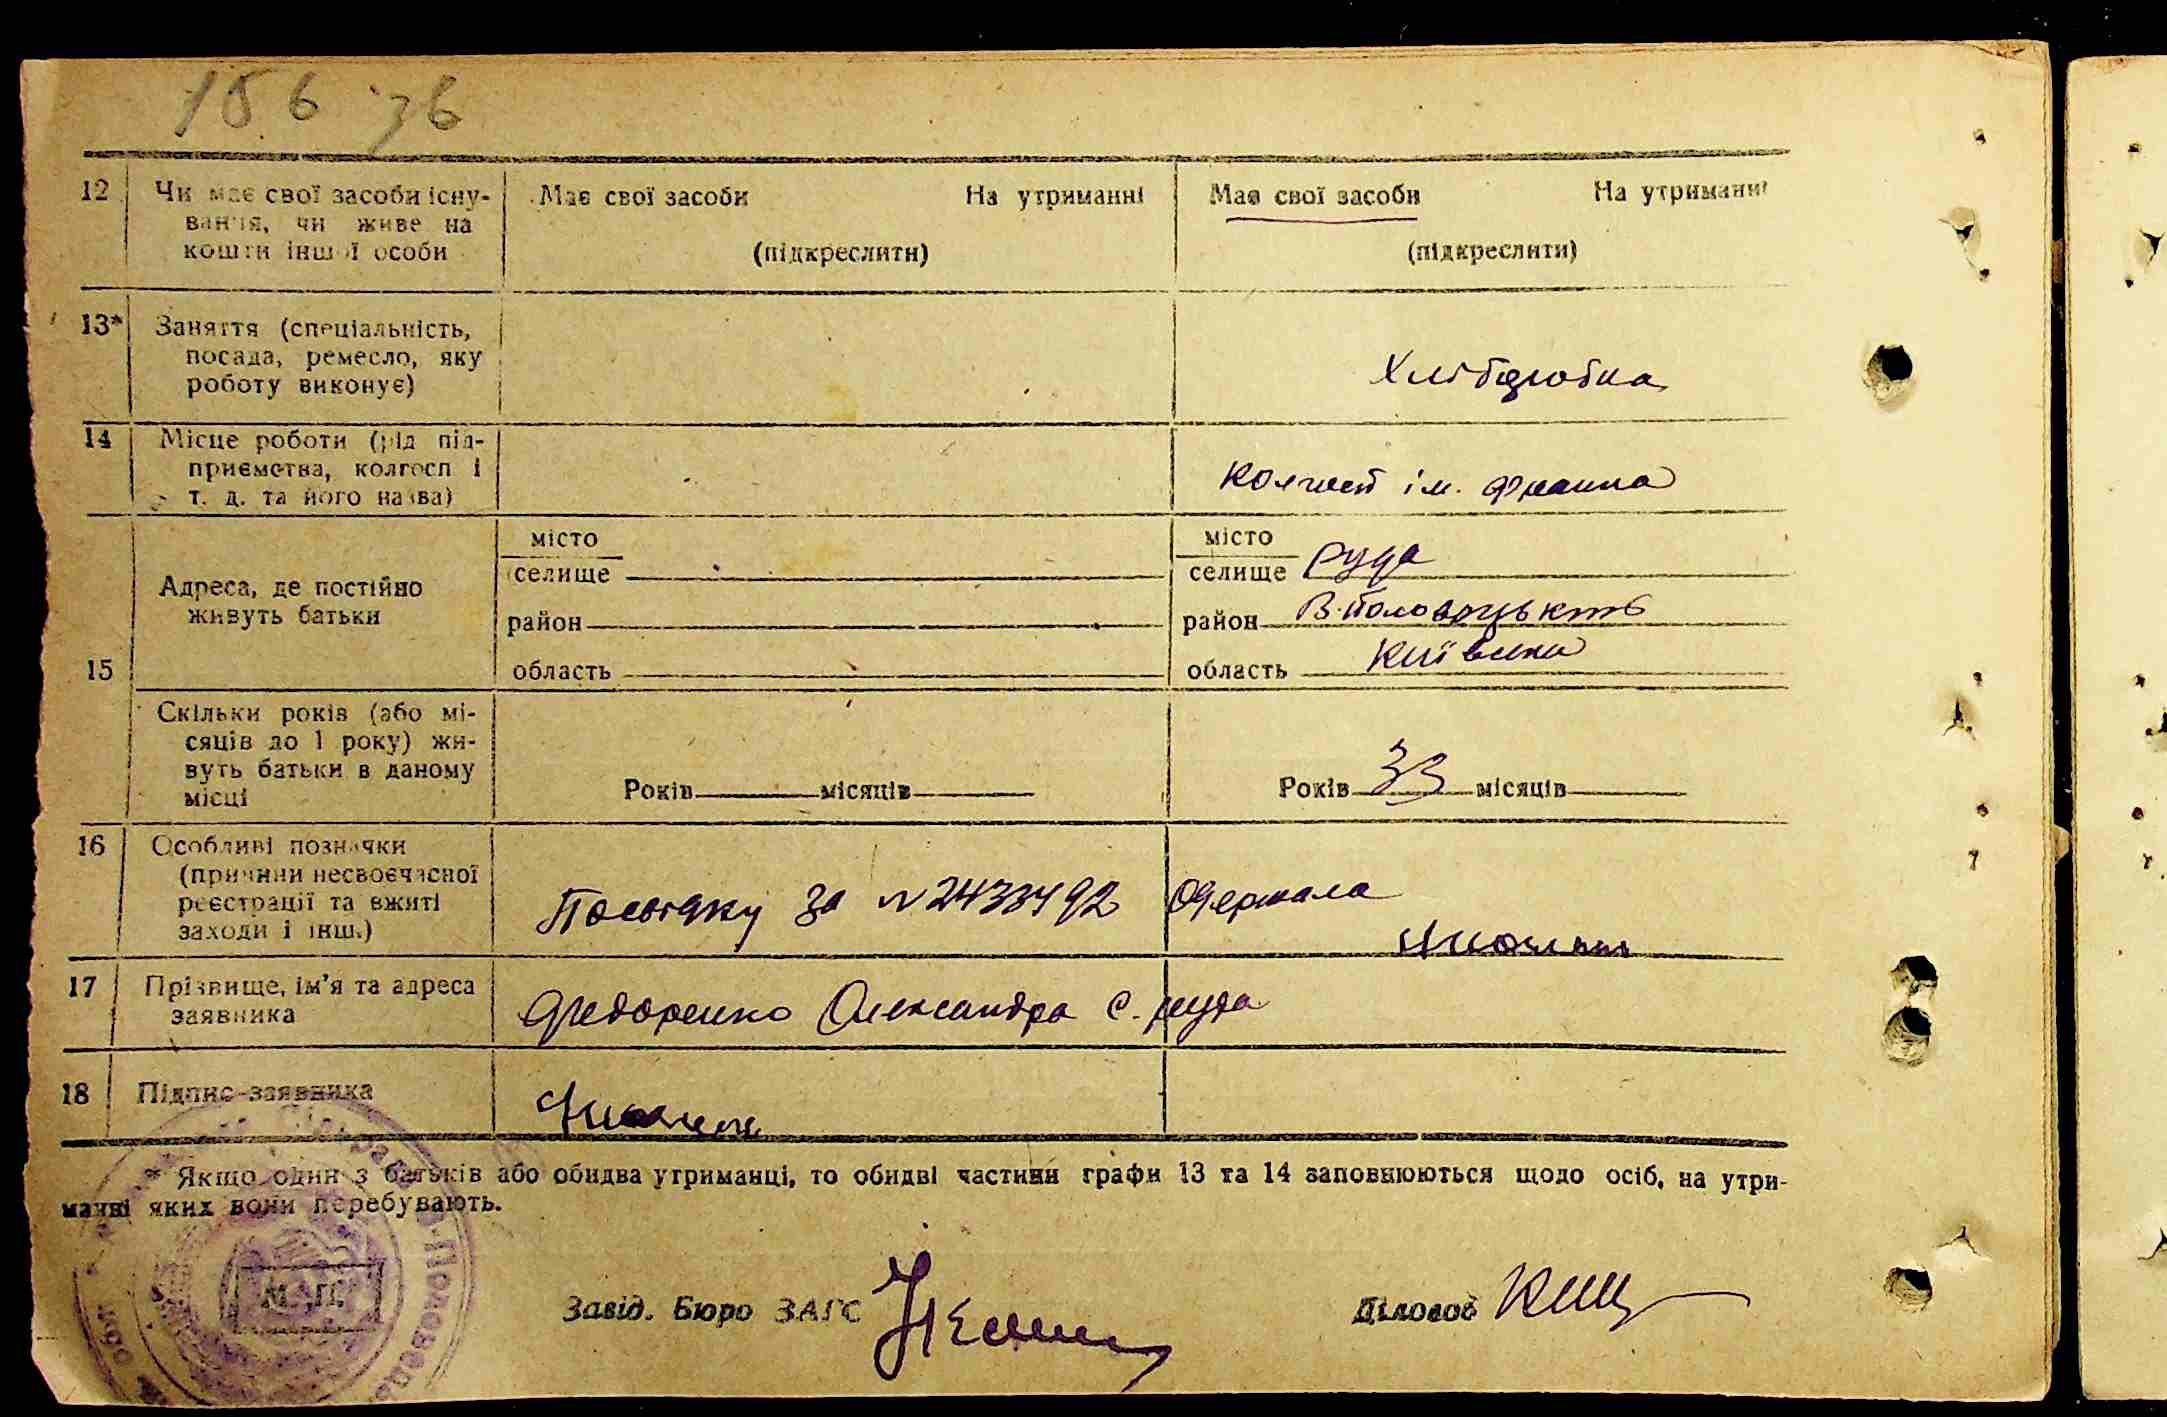 15 6 36
12 Чи має свої засоби існу-
вання, чи живе на
кошти іншої особи
Має свої засоби На утриманні
(підкреслити)
Має свої засоби На утриманні
(підкреслити)
13* Заняття (спеціальність,
посада, ремесло, яку
роботу виконує)
Хліборобка
14 Місце роботи (рід під-
приємства, колгосп і
т. д. та його назва)
колгосп ім. Франка
15 Адреса, де постійно
живуть батьки
місто
селище
район
область
місто
селище Руда
район В. Половецький
область Київська
Скільки років (або мі-
сяців до 1 року) жи-
вуть батьки в даному
місці
Років місяців
Років 33 місяців
16 Особливі позначки
(причини несвоєчасної
реєстрації та вжиті
заходи і інш.)
за № 2433492 одержала
17 Прізвище, ім'я та адреса
заявника
Федоренко Олександра с. Руда
18 Підпис заявника
* Якщо один з батьків або обидва утриманці, то обидві частини графи 13 та 14 заповнюються щодо осіб, на утри-
манні яких вони перебувають.
М. П.
Завід. Бюро ЗАГС
Діловод